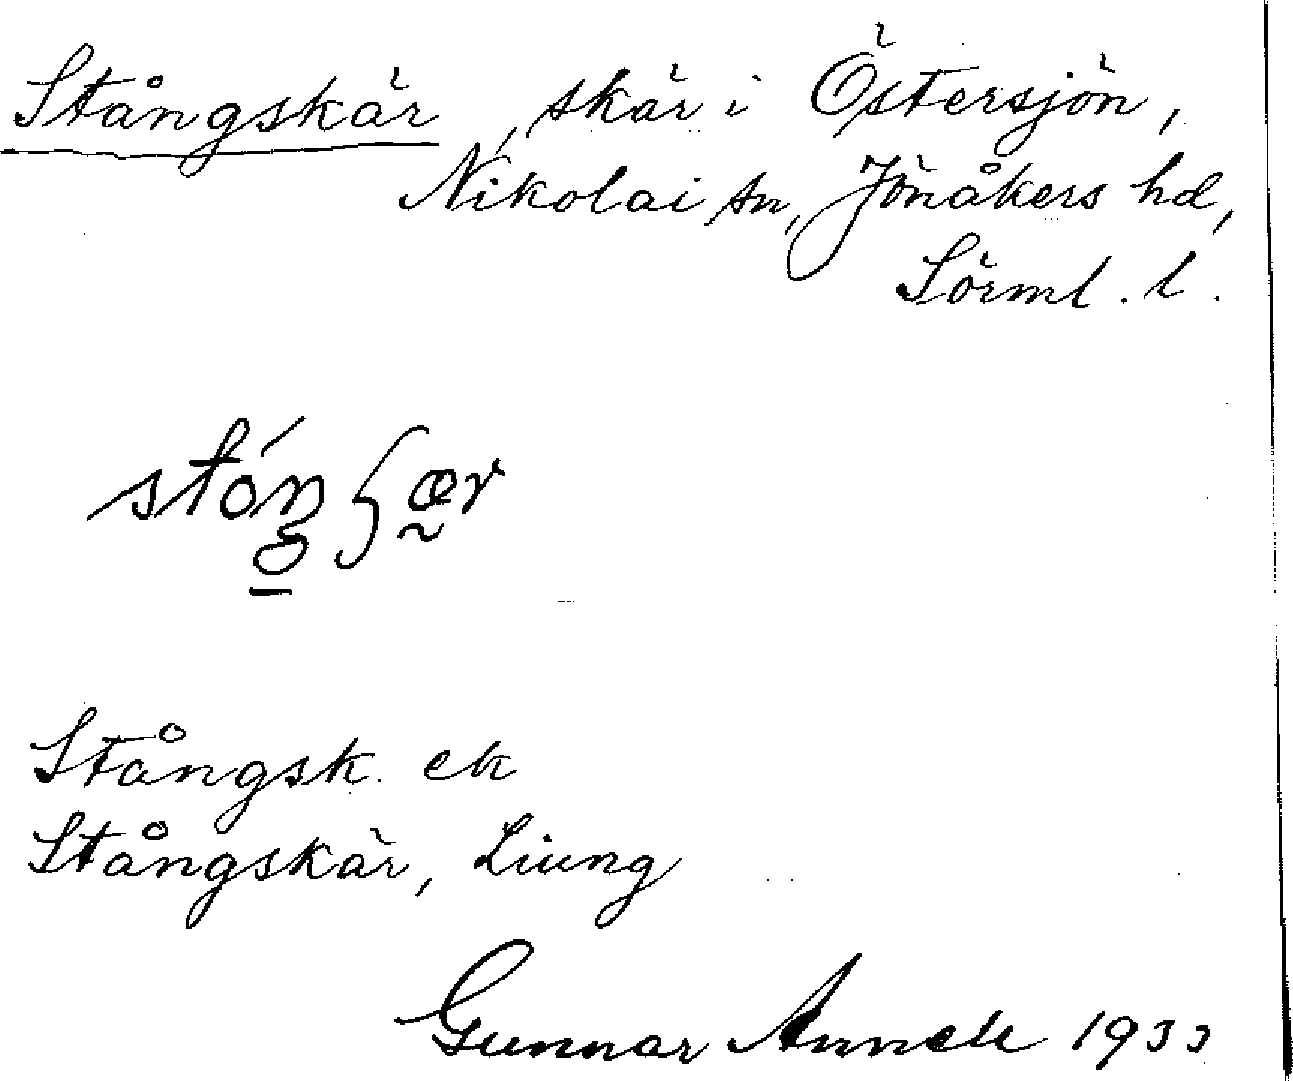 Stångskär, skär i Östersjön,
Nikolai sn, Jönåkers hd,
Sörml. l.
Stångsk. ek
Stångskär, Liung
Gunnar Annell 1933